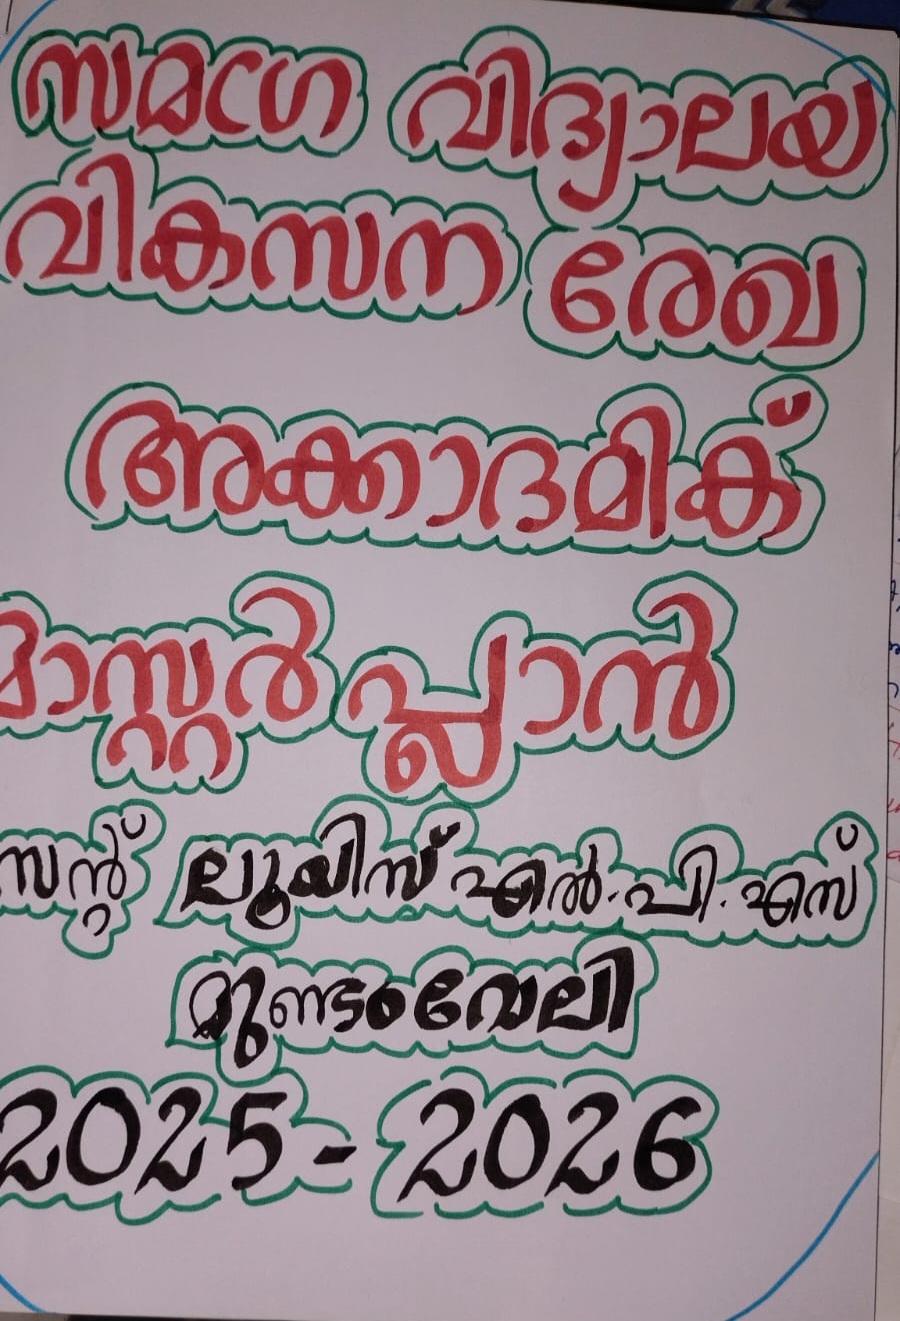 സമഗ്ര വിദ്യാലയ
വികസന രേഖ
അക്കാദമിക്
മാസ്റ്റർ പ്ലാൻ
സെന്റ് ലൂയിസ് എൽ.പി.എസ്
മുണ്ടംവേലി
2025-2026